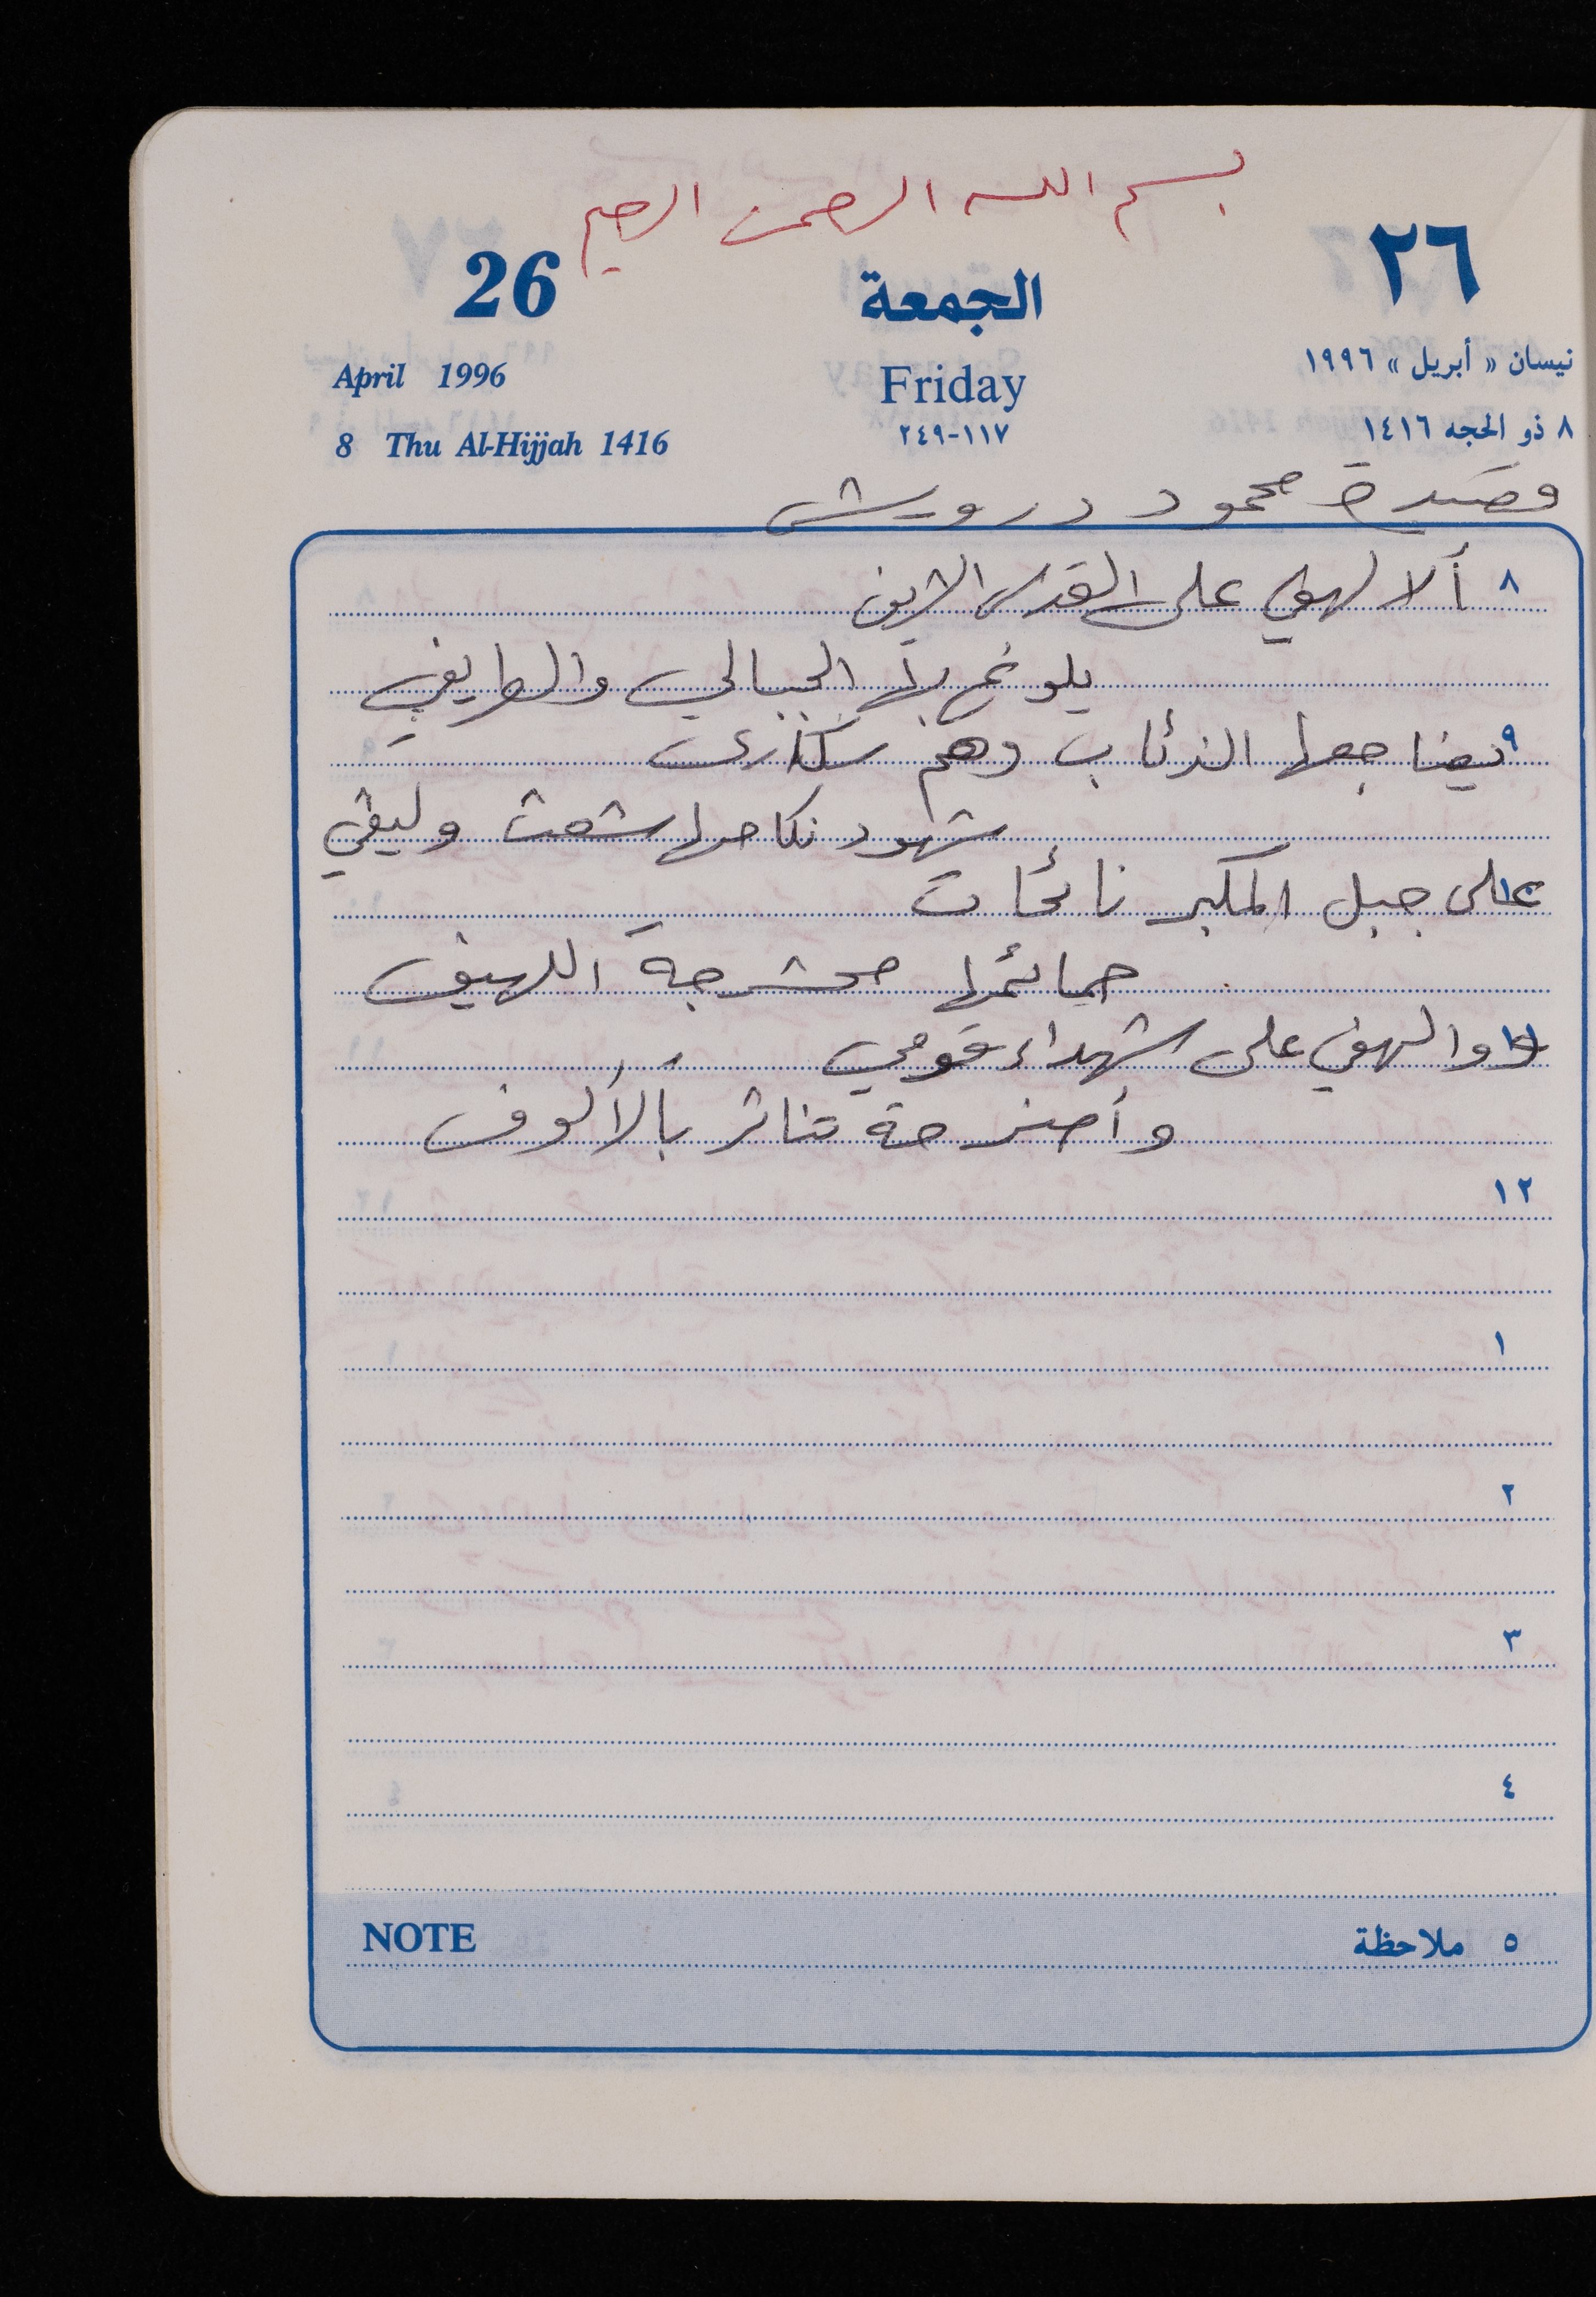 بسم الله الرحمن الرحيم
26 الجمعة ٢٦
April 1996 Friday نيسان « أبريل » ١٩٩٦
8 Thu Al-Hijjah 1416 ١١٧-٢٤٩ ٨ ذو الحجه ١٤١٦
قصيدة محمود درويش
٨ ألا لهفي على القدس الشريف
بها الجبالي
٩ يضاجعها الذئاب وهم سكارى
شهود نكاحها شعث وليفي
على جبل المكبر نائحات
حمائمها محشرجة اللهيف
١١ والهفي على شهداء قومي
وأضرحة تناثر بالألوف
١٢
١
٢
٣
٤
NOTE ٥ ملاحظة